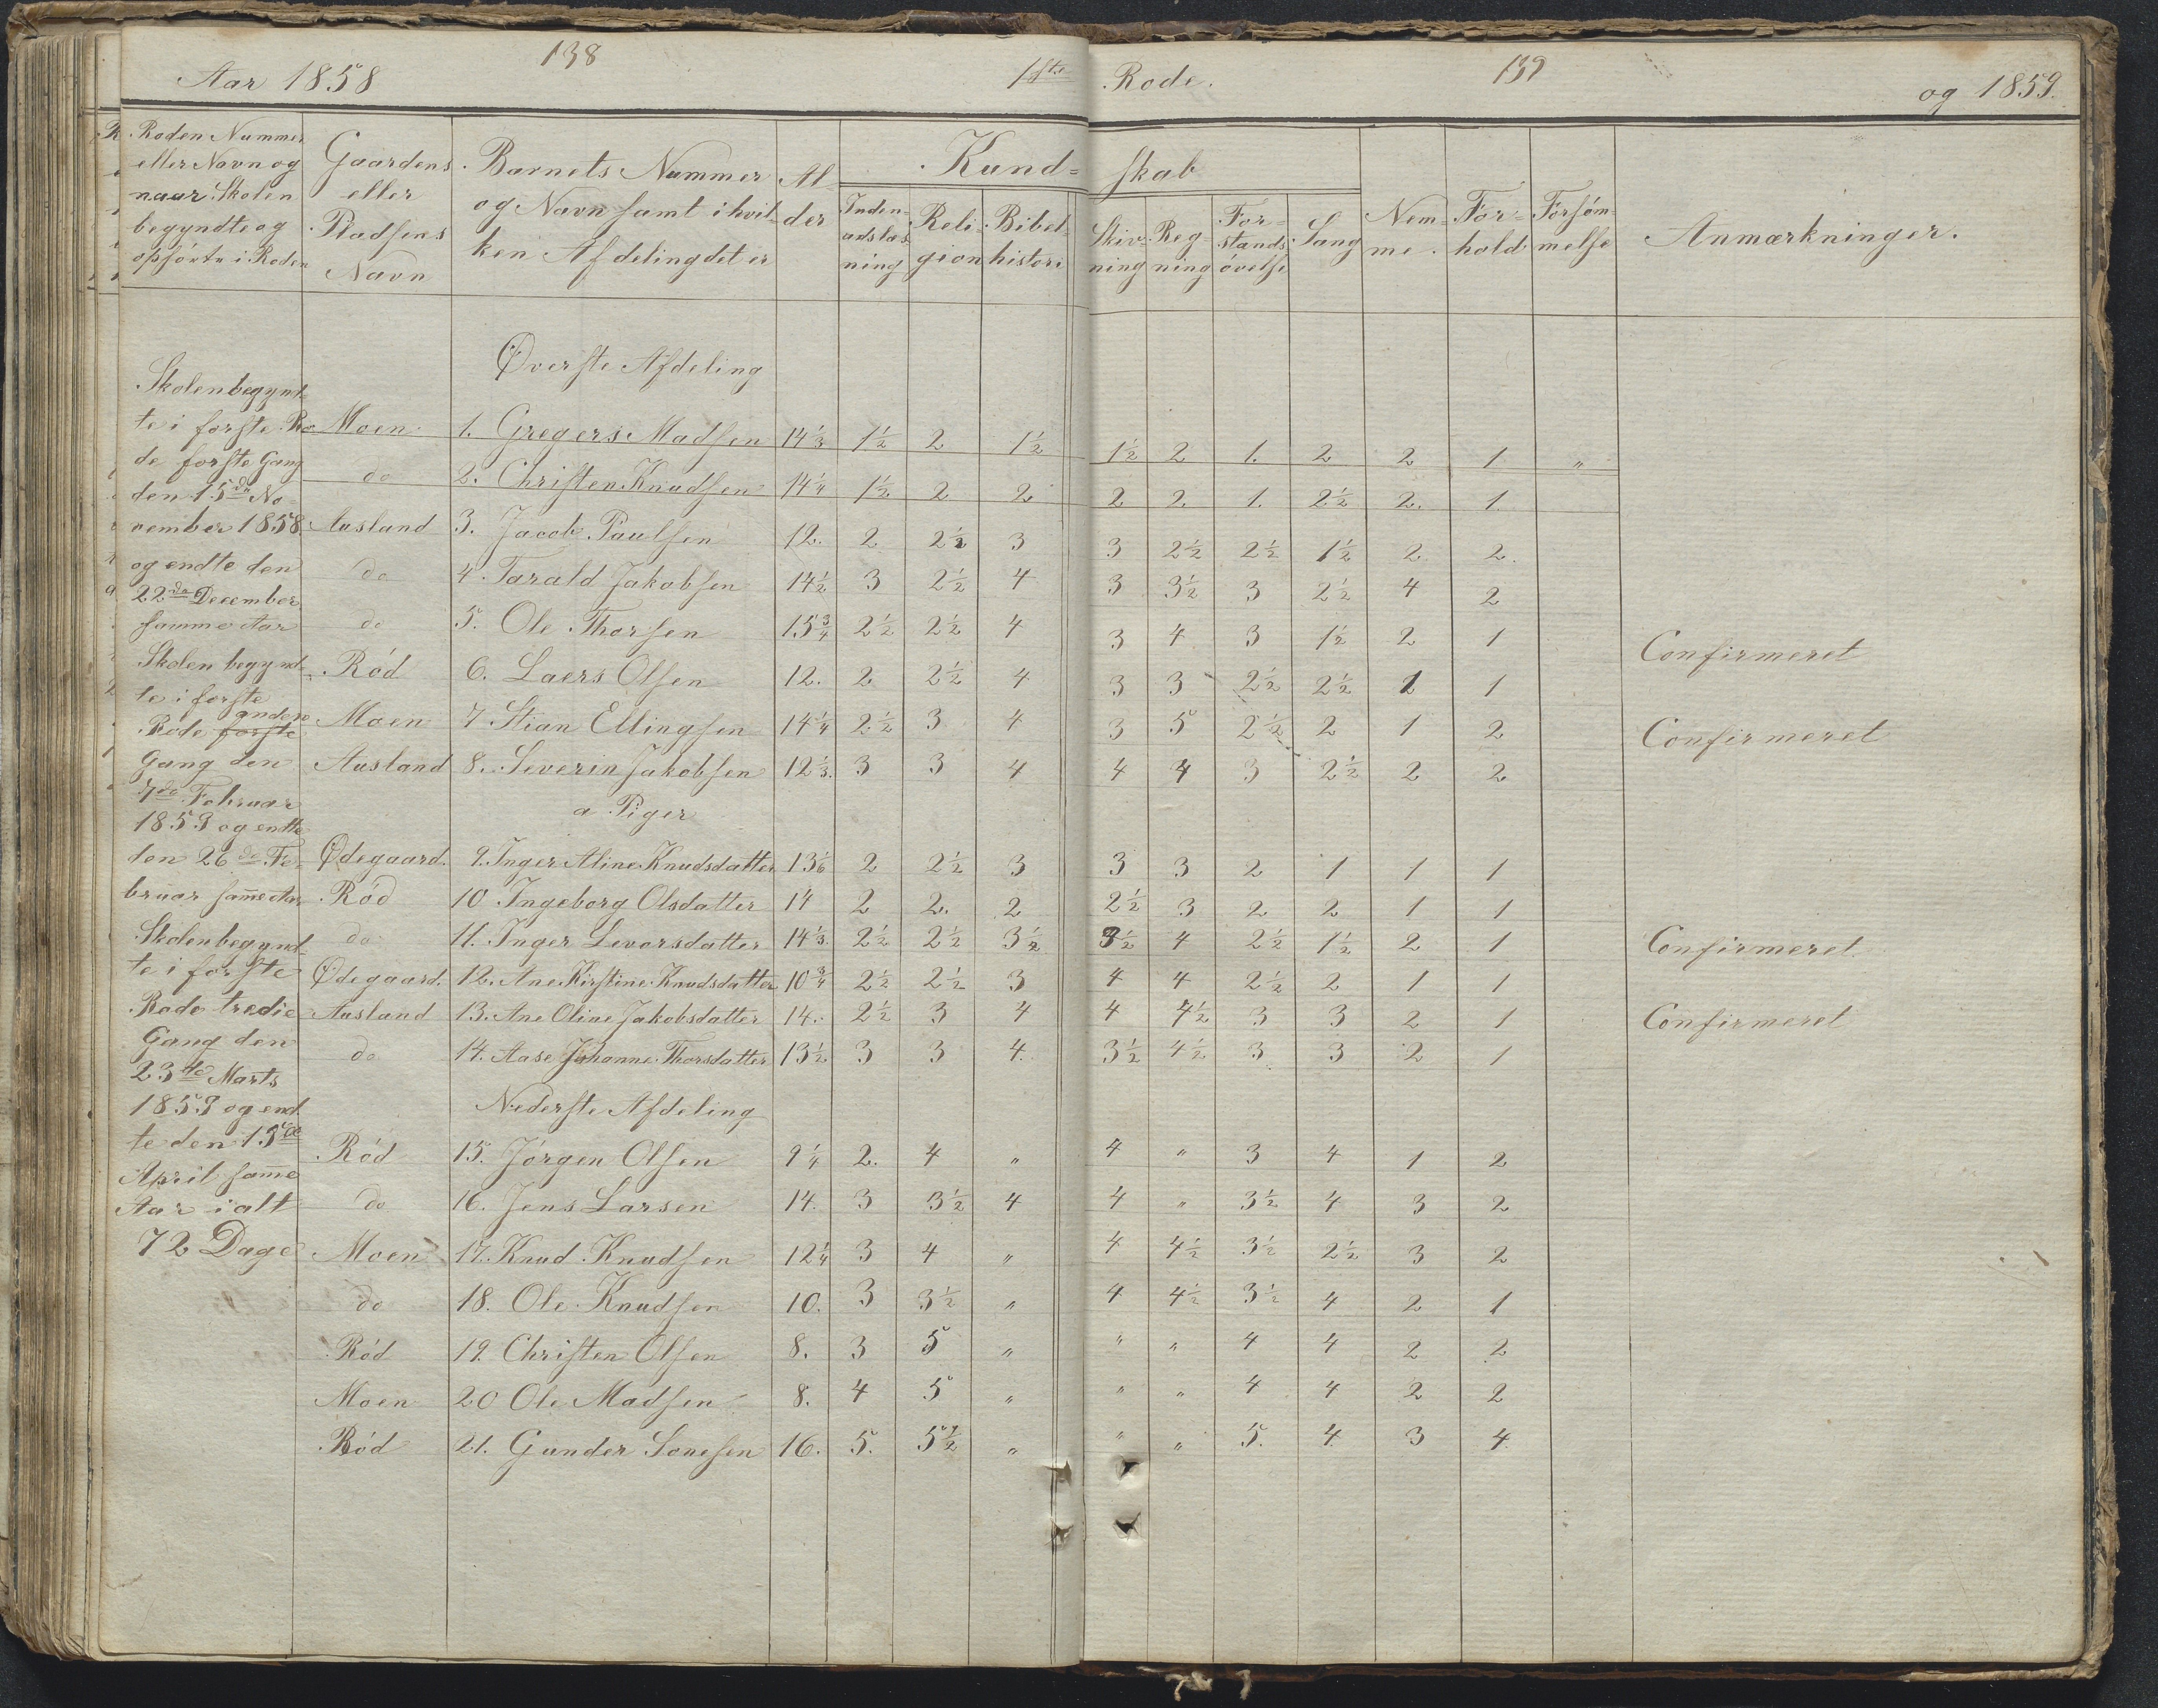 138
139
Aar 1858
1ste Rode.
og 1859.
Roden Nummer
eller Navn og
naar Skolen
begyndte og
ophörte i Roden
Gaardens
eller
Pladsens
Navn
Barnets Nummer
og Navn samt i hvil-
ken Afdeling det er
Al-
der
Kund-
skab
Inden-
adslæs-
ning
Reli-
gion
Bibel-
histori
Skriv-
ning
Reg-
ning
For-
stands-
øvelse
Sang
Nem-
me.
For-
hold
Forsöm-
melse
Anmærkninger.
Skolen begynd-
te i forste Ro
de forste Gang
den 15de No-
vember 1858.
og endte den
22de December
samme Aar
Skolen begynd-
te i forste
anden
Rode forste
Gang den
7de Februar
1859 og endte
den 26de Fe-
bruar same Aar
Skolen begynd-
te i forste
Rode tredie
Gang den
23de Marts
1859 og end
te den 13de
April same
Aar ialt
72 Dage
Øverste Afdeling
Moen 1. Gregers Madsen 14 1/3 1 1/2 2 1 1/2 1 1/2 2 1. 2 2 1 "
do 2. Christen Knudsen 14 1/4 1 1/2 2 2 2 2. 1. 2 1/2 2. 1.
Ausland 3. Jacob Paulsen 12. 2 2 1/2 3 3 2 1/2 2 1/2 1 1/2 2 2.
do 4. Tarald Jakobsen 14 1/2 3 2 1/2 4 3 3 1/2 3 2 1/2 4 2
do 5. Ole Thorsen 15 3/4 2 1/2 2 1/2 4 3 4 3 1 1/2 2 1 Confirmeret
Röd 6. Laers Olsen 12. 2 2 1/2 4 3 3 2 1/2 2 1/2 1 1
Moen 7. Stian Ellingsen 14 1/4 2 1/2 3 4 3 5 2 1/2 2 1 2 Confirmeret
Ausland 8. Severin Jakobsen 12 1/3. 3 3 4 4 4 3 2 1/2 2 2
a Piger
Ødegaard. 9. Inger Aline Knudsdatter 13 1/6 2 2 1/2 3 3 3 2 1 1 1
Röd 10 Ingeborg Olsdatter 14 2 2. 2 2 1/2 3 2 2 1 1
do 11. Inger Levorsdatter 14 1/3. 2 1/2 2 1/2 3 1/2 3 1/2 4 2 1/2 1 1/2 2 1 Confirmeret
Ødegaard. 12. Ane Kirstine Knudsdatter 10 3/4 2 1/2 2 1/2 3 4 4 2 1/2 2 1 1
Ausland 13. Ane Oline Jakobsdatter 14. 2 1/2 3 4 4 4 1/2 3 3 2 1 Confirmeret
do 14. Aase Johanne Thorsdatter 13 1/2 3 3 4. 3 1/2 4 1/2 3 3 2 1
Nederste Afdeling
Röd 15. Jörgen Olsen 9 1/4 2. 4 " 4 " 3 4 1 2
do 16. Jens Larsen 14. 3 3 1/2 4 4 " 3 1/2 4 3 2
Moen 17. Knud Knudsen 12 1/4 3 4 " 4 4 1/2 3 1/2 2 1/2 3 2
do 18. Ole Knudsen 10. 3 3 1/2 " 4 4 1/2 3 1/2 4 2 1
Röd 19. Christen Olsen 8. 3 5 " " " 4 4 2 2
Moen 20 Ole Madsen 8. 4 5 " " " 4 4 2 2
Röd 21. Gunder Sonesen 16. 5. 5 1/2 " " " 5. 4 3 4